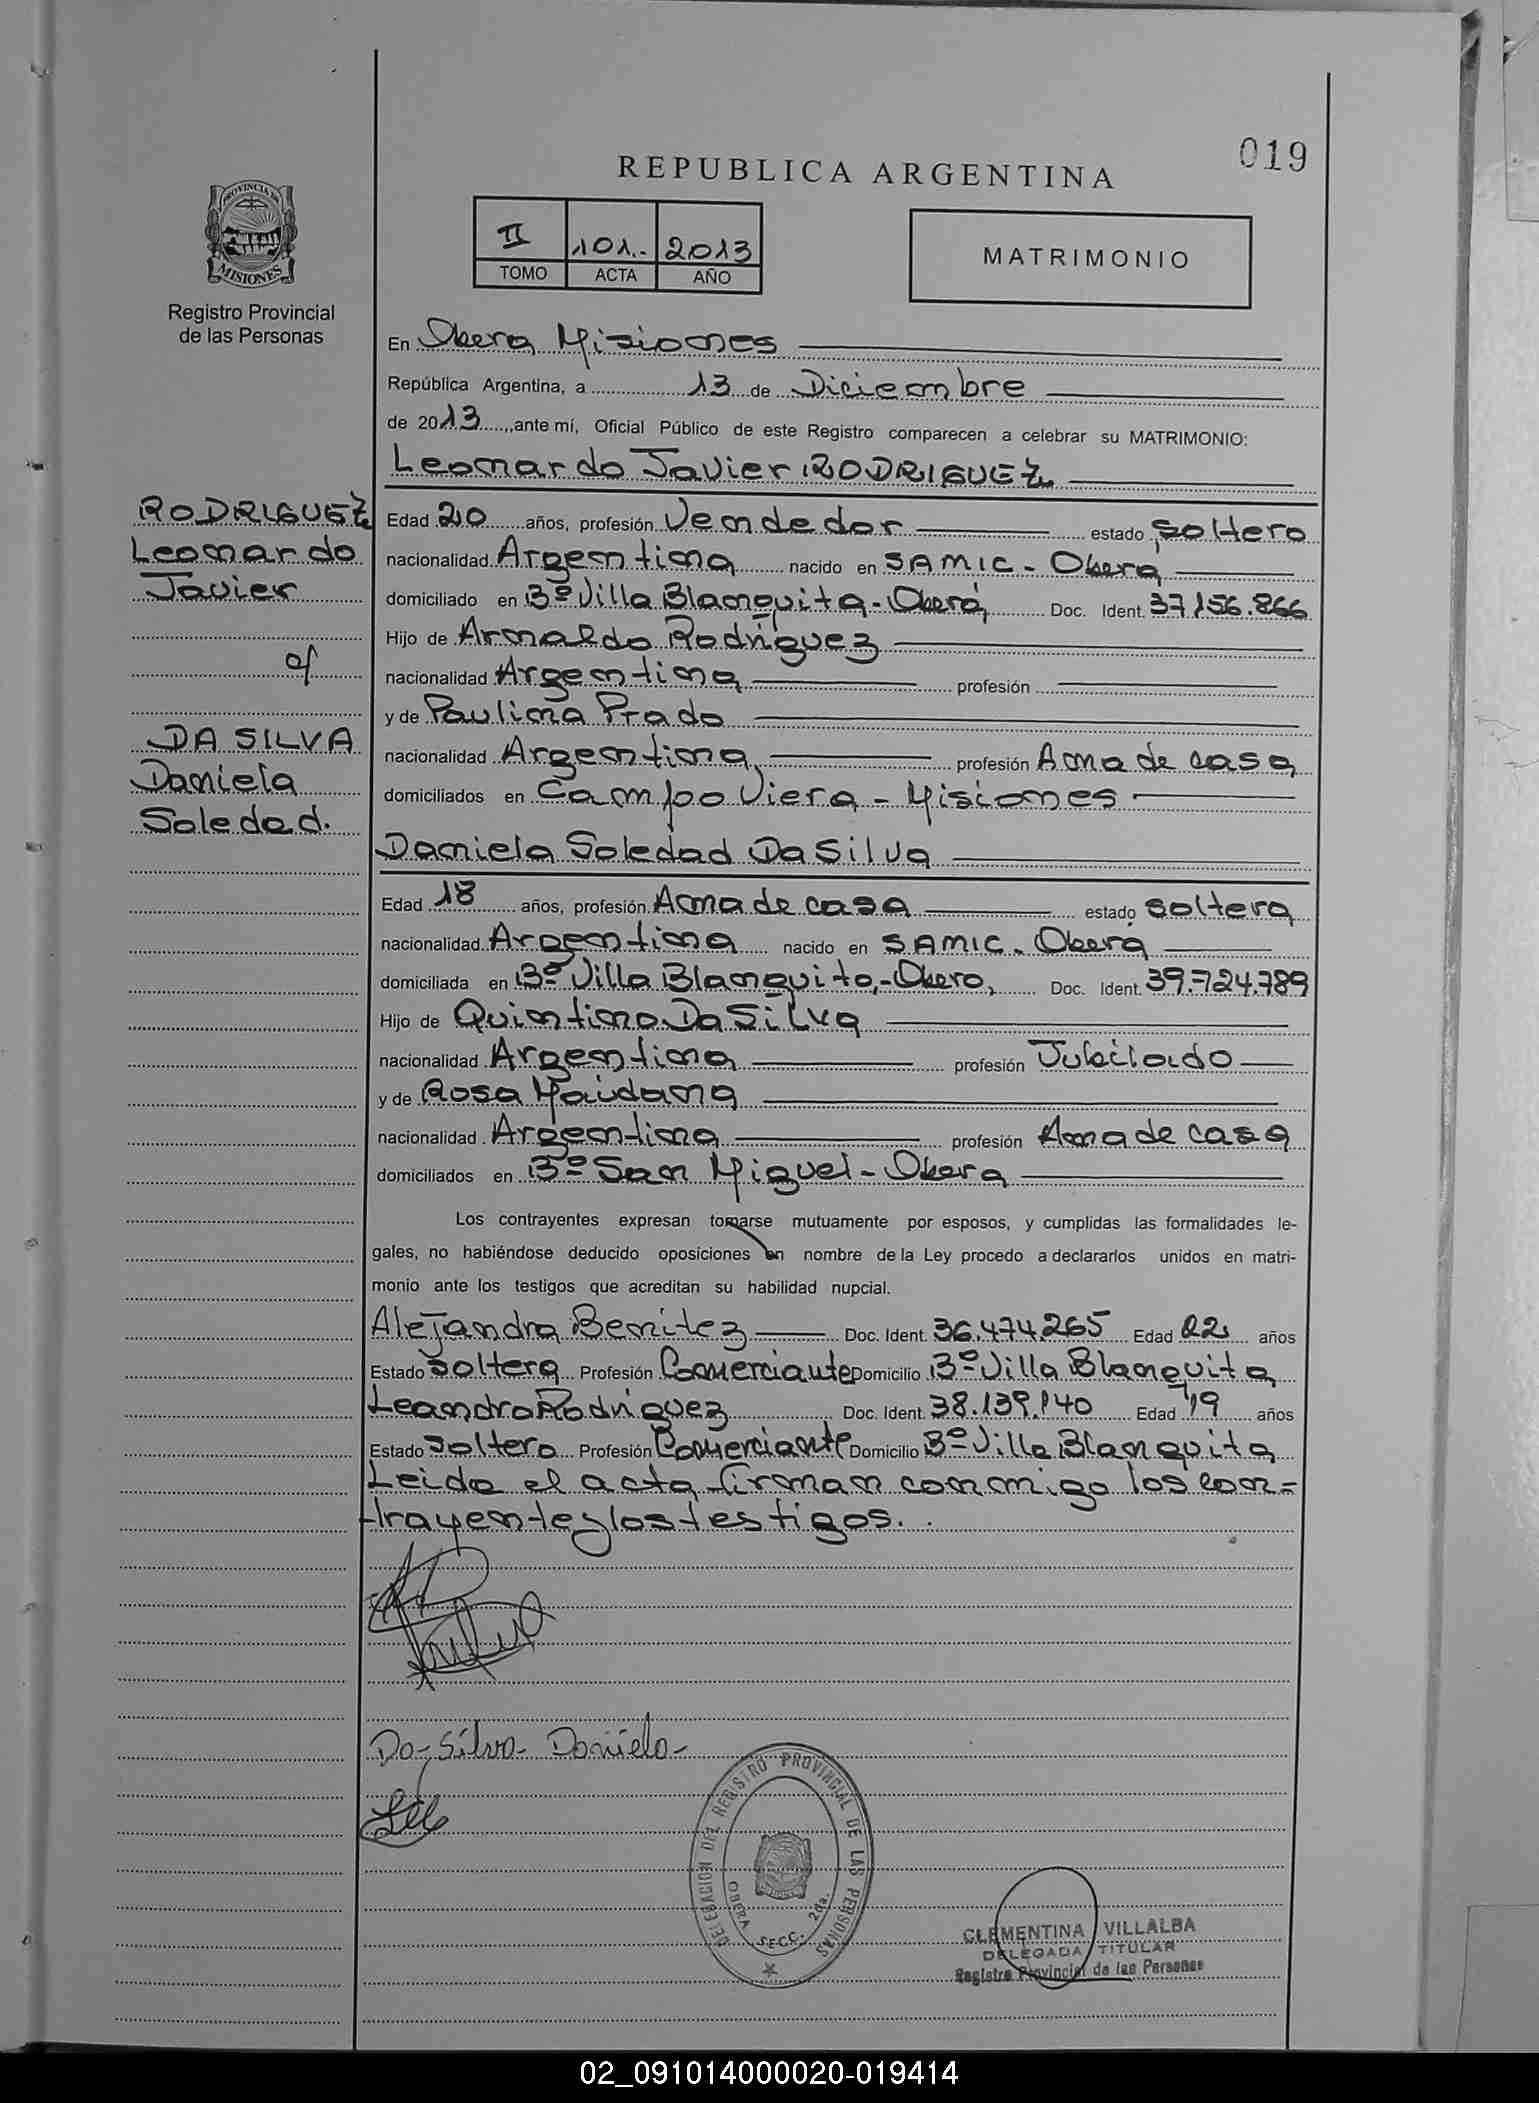 019
REPUBLICA ARGENTINA
II 101.- 2013
TOMO ACTA AÑO
MATRIMONIO
PROVINCIA DE
MISIONES
Registro Provincial
de las Personas
RODRIGUEZ
Leonardo
Javier
c/
DA SILVA
Daniela
Soledad.
En Obera Misiones
República Argentina, a 13 de Diciembre
de 2013, ante mí, Oficial Público de este Registro comparecen a celebrar su MATRIMONIO:
Leonardo Javier RODRIGUEZ
Edad 20 años, profesión Vendedor estado soltero
nacionalidad Argentina nacido en SAMIC - Oberá
domiciliado en Bº Villa Blanquita - Oberá, Doc. Ident. 37.156.866
Hijo de Arnaldo Rodriguez
nacionalidad Argentina profesión
y de Paulina Prado
nacionalidad Argentina profesión Ama de casa
domiciliados en Campo Viera - Misiones
Daniela Soledad Da Silva
Edad 18 años, profesión Ama de casa estado soltera
nacionalidad Argentina nacido en SAMIC - Oberá
domiciliada en Bº Villa Blanquita - Obera, Doc. Ident. 39.724.789
Hijo de Quintino Da Silva
nacionalidad Argentina profesión Jubilado
y de Rosa Maidana
nacionalidad Argentina profesión Ama de casa
domiciliados en Bº San Miguel - Obera
Los contrayentes expresan tomarse mutuamente por esposos, y cumplidas las formalidades le-
gales, no habiéndose deducido oposiciones en nombre de la Ley procedo a declararlos unidos en matri-
monio ante los testigos que acreditan su habilidad nupcial.
Alejandra Benitez Doc. Ident. 36.474.265 Edad 22 años
Estado soltera Profesión Comerciante Domicilio Bº Villa Blanquita
Leandro Rodriguez Doc. Ident. 38.139.140 Edad 19 años
Estado soltero Profesión Comerciante Domicilio Bº Villa Blanquita
Leida el acta firman conmigo los con=
trayente y los testigos.
Da Silva Daniela
DELEGACION DEL REGISTRO PROVINCIAL DE LAS PERSONAS
OBERA SECC. 2da.
CLEMENTINA VILLALBA
DELEGADA TITULAR
Registro Provincial de las Personas
02_091014000020-019414